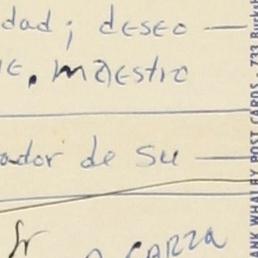 dad; deseo —
e. maestro
ador de su —
Sr
GARZA
ANK WHALEY POST CARDS . 733 Burkh